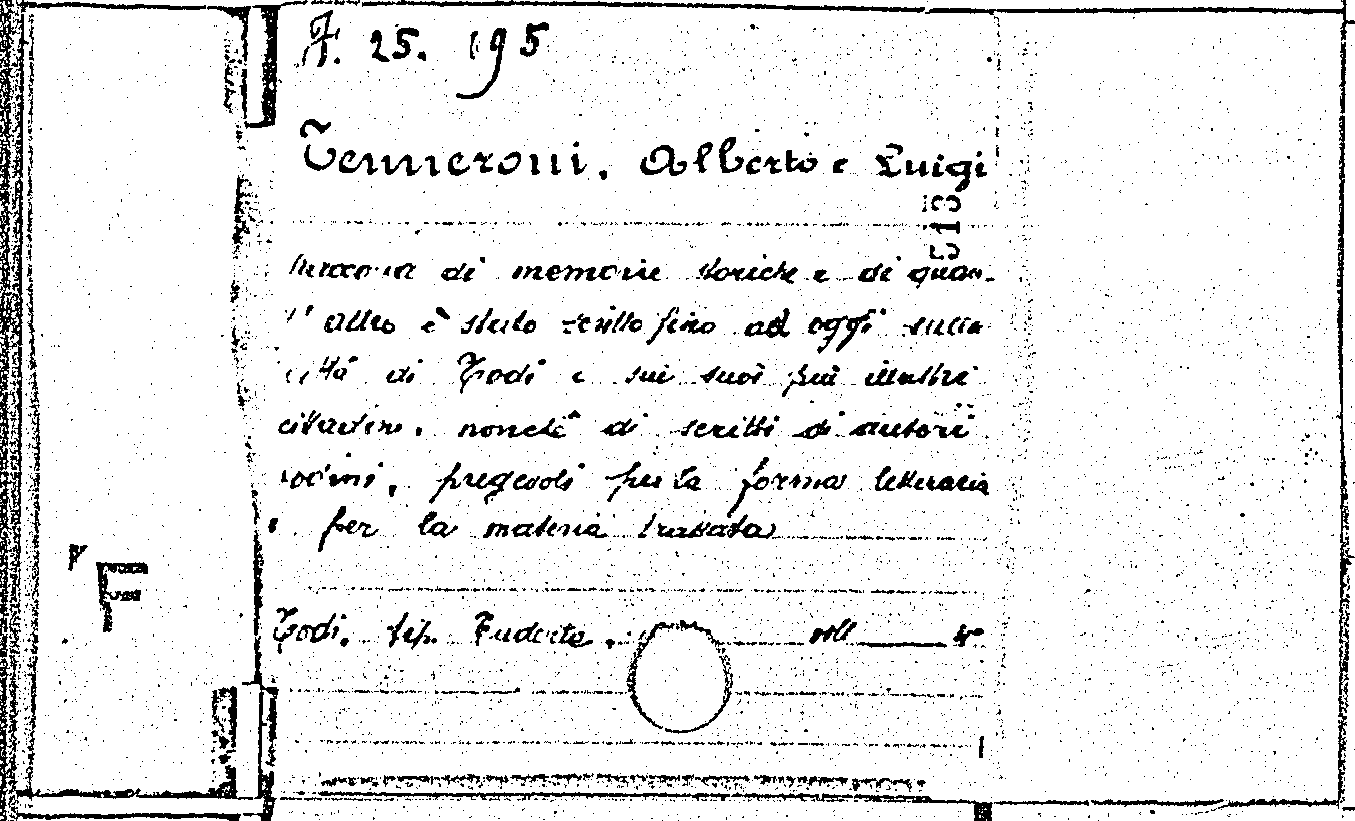 F. 25. 195
Tenneroni. Alberto e Luigi
513
di memorie storiche e di quan-
t'altro è stato scritto fino ad oggi sulla
città di Todi e sui suoi più illustri
cittadini, nonchè di scritti di autori
todini, pregevoli per la forma letteraria
e per la materia trattata
Todi. tip. Tuderte. voll ___ 4°